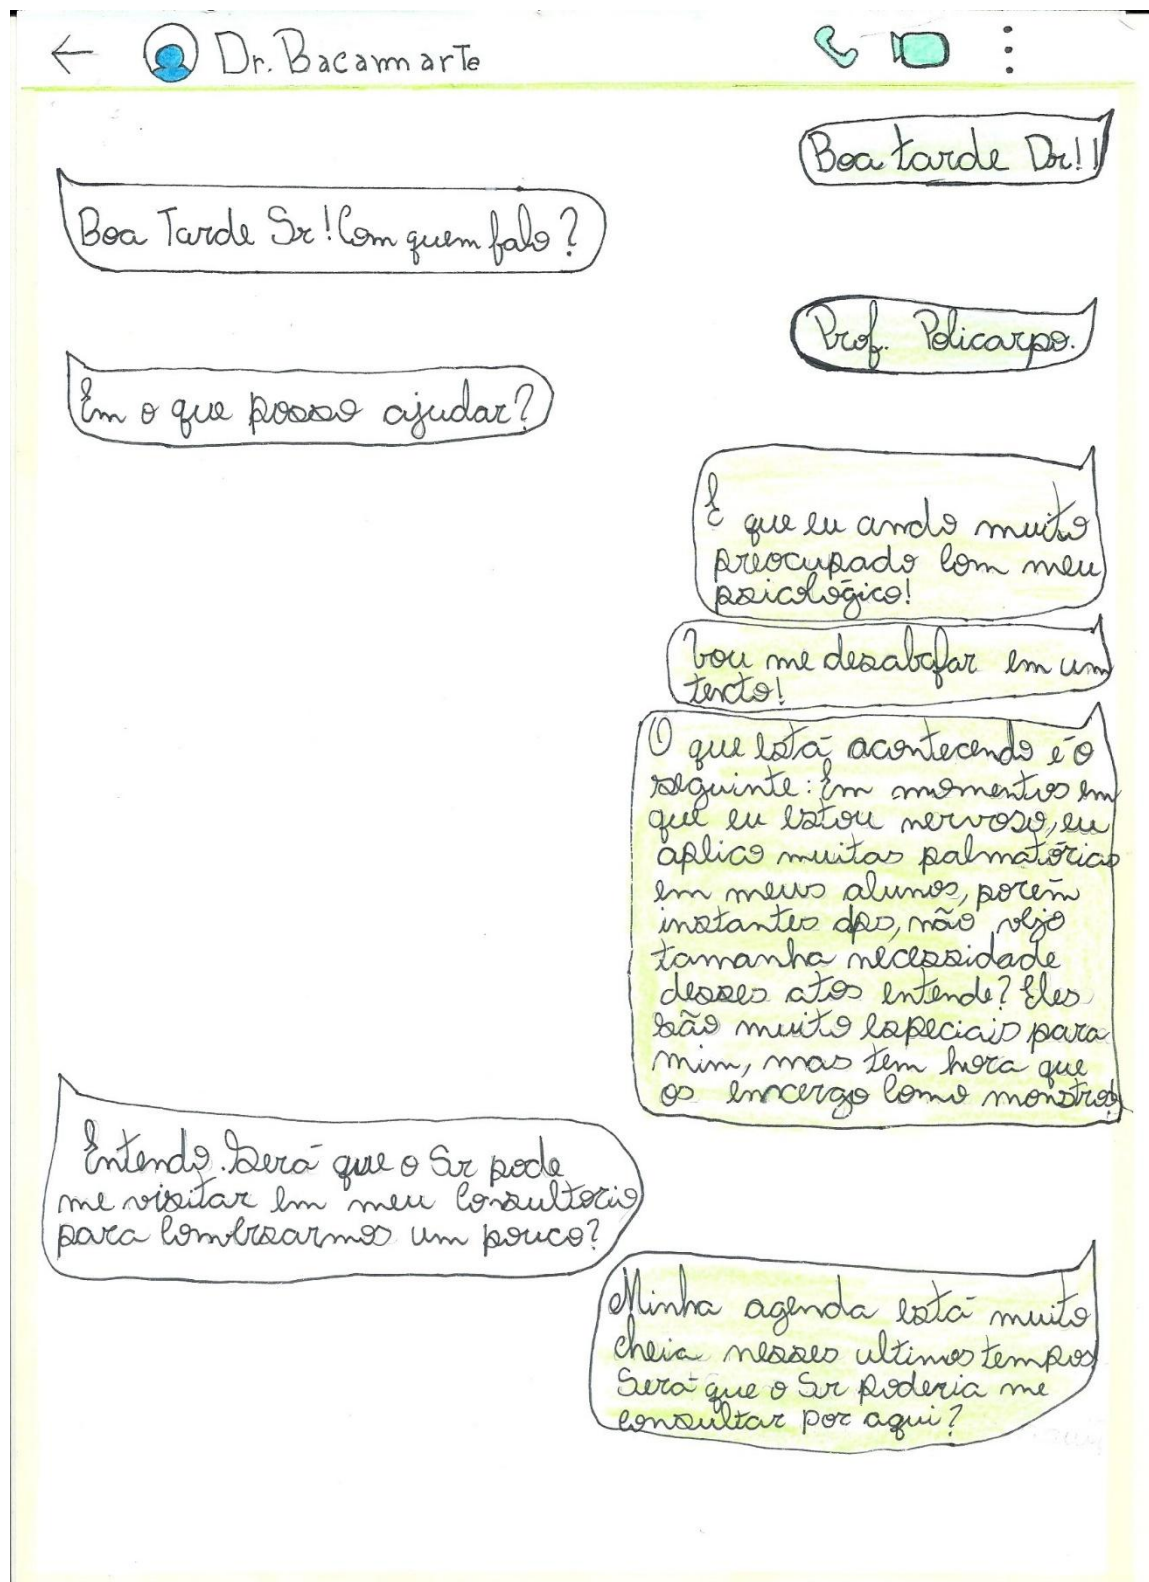 Dr. Bacamarte
Boa tarde Dr!!
Boa Tarde Sr! Com quem falo?
Prof. Policarpo.
Em o que posso ajudar?
É que eu ando muito
preocupado com meu
psicológico!
Vou me desabafar em um
texto!
O que está acontecendo é o
seguinte: Em momentos em
que eu estou nervoso, eu
aplico muitas palmatórias
em meus alunos, porém
instantes dps, não vejo
tamanha necessidade
desses atos entende? Eles
são muito especiais para
mim, mas tem hora que
os enxergo como monstros!
Entendo. Será que o Sr pode
me visitar em meu consultorio
para conversarmos um pouco?
Minha agenda está muito
cheia nesses ultimos tempos
Será que o Sr poderia me
consultar por aqui?